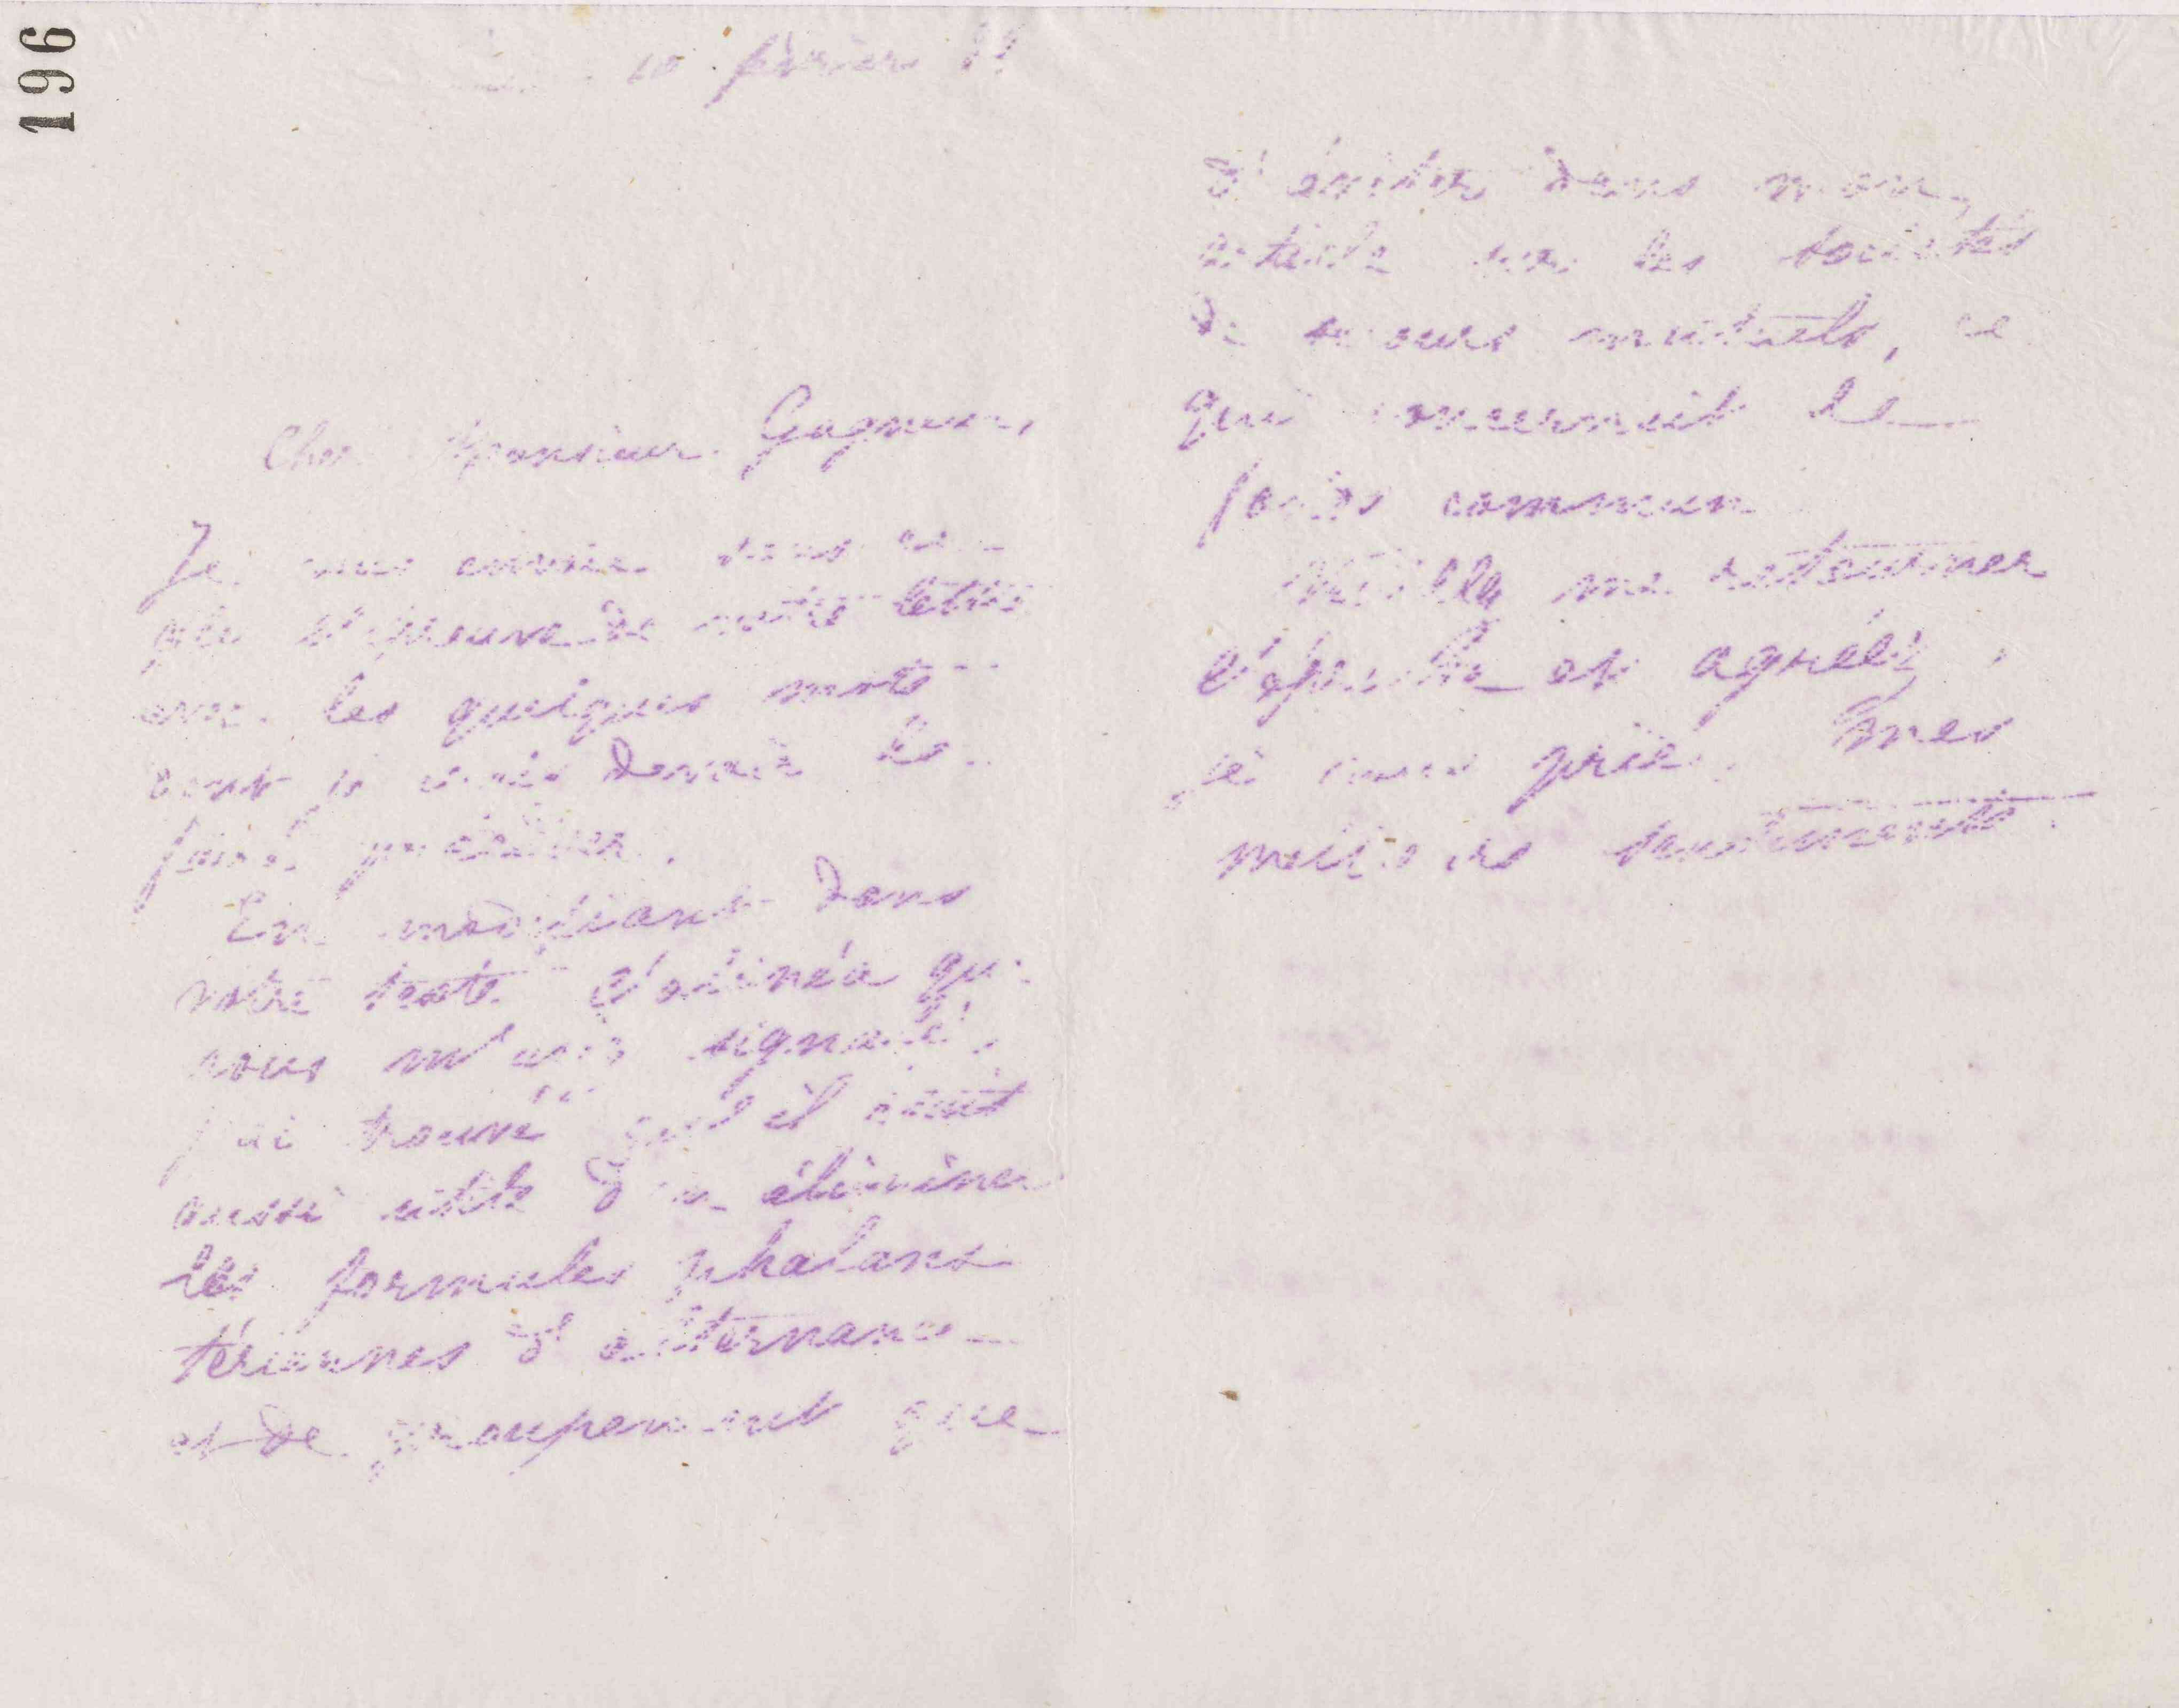 196
10 février
Cher Monsieur Gagneur,
Je vous envoie dans ce
pli l'épreuve de votre lettre
avec les quelques mots
dont je vais devoir la
faire précéder.
En modifiant dans
votre texte l'alinéa que
vous m'avez signalé,
j'ai trouvé qu'il était
aussi utile d'en éliminer
les formules phalans
tériennes d'alternance
et de groupement que
d'éviter dans mon
article sur les sociétés
de secours mutuels, ce
qui concernait le
fonds commun
Veuillez me retourner
l'épreuve et agréez,
je vous prie, mes
meilleurs sentiments